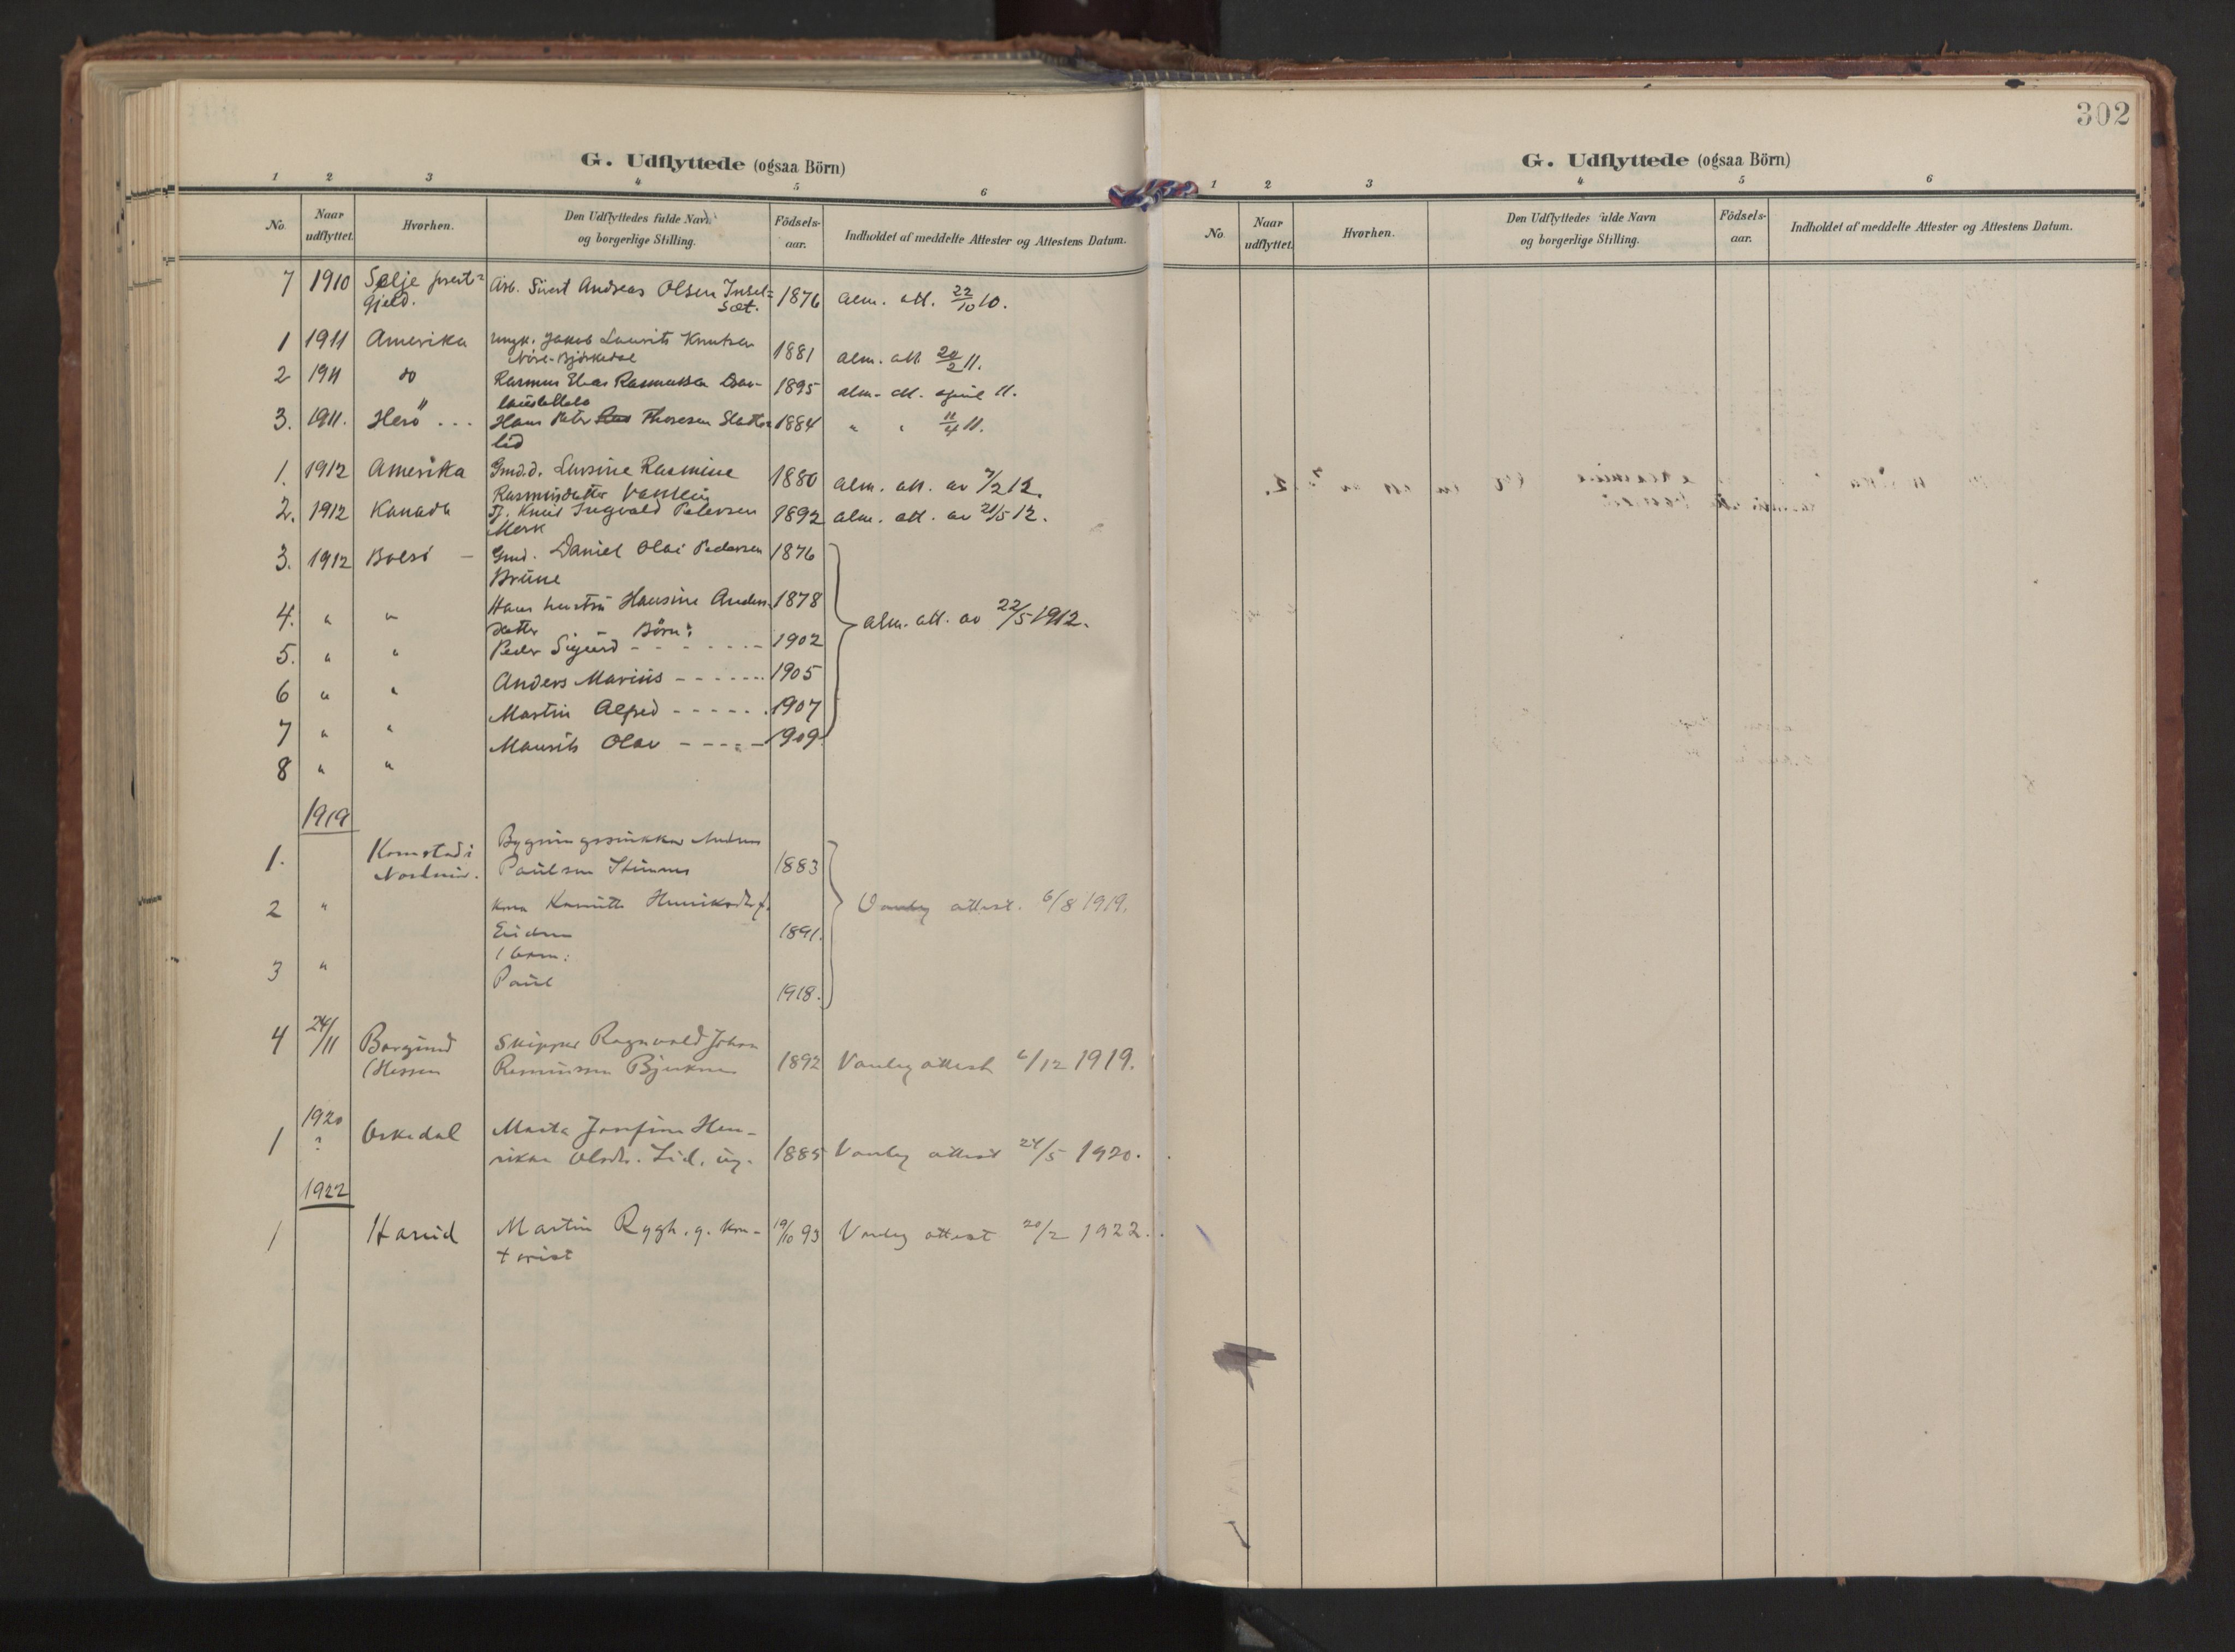 302
G. Udflyttede (ogsaa Börn)
1 2 3 4 5 6
No. Naar udflyttet. Hvorhen. Den Udflyttedes fulde Navn og borgerlige Stilling. Födsels-aar. Indholdet af meddelte Attester og Attestens Datum.
7 1910 Selje prest= Arb. Sivert Andreas Olsen 1876 alm. att. 22/10 10.
gjeld. Sæt.
1 1911 Amerika ungk. Jakob Laurits Knutsen 1881 alm. att. 20/2 11.
2 1911 do Rasmus Elias Rasmussen 1895 alm. att. april 11.
3. 1911. Herö ... Hans Peter Thoresen 1884 " " 11/4 11.
lid
1. 1912 Amerika Gmd.d. Lovsine Rasmine 1880 alm. att. av 7/2 12.
Rasmusdatter
2. 1912 Kanada Knut Ingvald Petersen 1892 alm. att. av 21/5 12.
Mork
3. 1912 Bolsö - Gmd. Daniel Olai Pedersen 1876
Brune
4. " " Hans hustru Hansine Anders- 1878 alm. att. av 22/5 1912.
datter Børn:
5. " " Peder Sigurd - - - - - - 1902
6 " " Anders Marius - - - - - - 1905
7 " " Martin Alfred - - - - - . 1907
8 " " Maurits Olav - - - - - 1909
1919
1. Komstad i Bygningssnikker
Nordmør. Paulsen 1883
2 " kona Henriksdtr. attest. 6/8 1919.
1891.
1 barn:
3 " Paul 1918.
4 24/11 Borgund Skipper Ragnvald Johan
(Hessen Rasmussen 1892 Vanleg attest 6/12 1919.
1920
1 ? Marta Josefine Hen-
rikke Olsdtr. Lid, ug. 1885 Vanleg attest 24/5 1920.
1922
1 Hareid Martin Rygh. g. kon- 19/10 93 Vanleg attest 20/2 1922.
torist
G. Udflyttede (ogsaa Börn)
1 2 3 4 5 6
No. Naar udflyttet. Hvorhen. Den Udflyttedes fulde Navn og borgerlige Stilling. Födsels-aar. Indholdet af meddelte Attester og Attestens Datum.